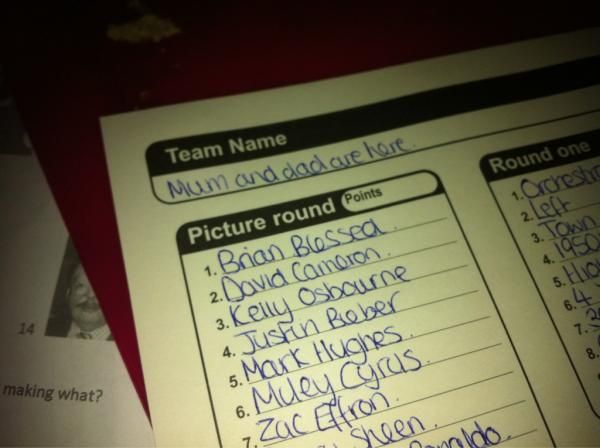 Team Name
Mum and dad are here.
Picture round Points
1. Brian Blessed.
2. David Cameron.
3. Kelly Osbourne
4. Justin Beiber
5. Mark Hughes.
6. Miley Cyrus.
7. Zac Effron.
Sheen.
Ronaldo.
Round one
1. Orchestra
2. Left
3. Town
4. 1950
5.
6. 4
7.
8.
14
making what?